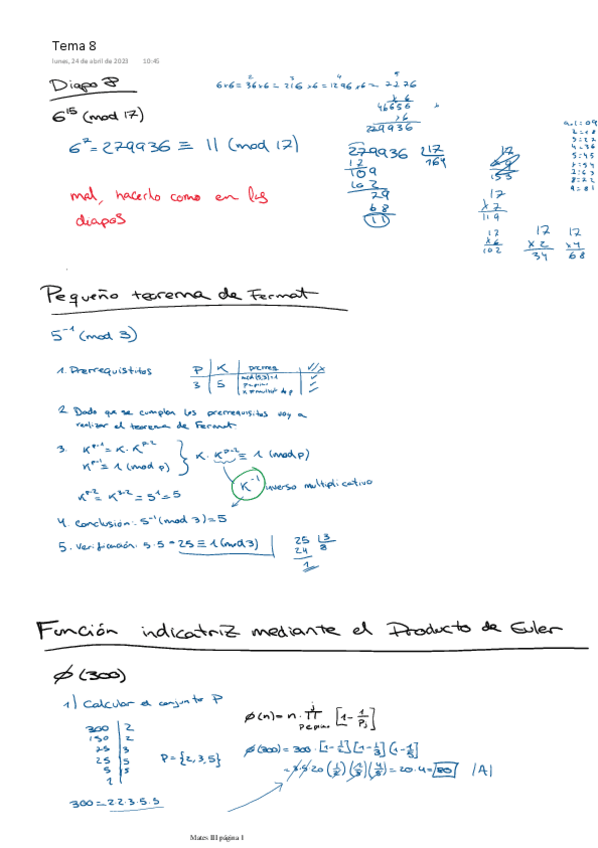 Tema 8
lunes, 24 de abril de 2023 10:45
Diapo 8
6×6=36×6=216×6=1296×6=
6^15 (mod 17)
× 6
46656
×6
279936
6^7=279936 ≡ 11 (mod 17)
279936 |17
12
109
102
29
68
(11)
mal, hacerlo como en las
diapos
17
×7
119
17
×6
102
17
×2
34
17
×4
68
Pequeño teorema de Fermat
5^-1 (mod 3)
1. Prerrequisitos
P | K | prerreq | ✓/x
3 | 5
2. Dado que se cumplen los prerrequisitos voy a
realizar el teorema de Fermat
3. K^p-1 = K · K^p-2
K^p-1 ≡ 1 (mod p)
K · K^p-2 ≡ 1 (mod p)
K^-1 inverso multiplicativo
K^p-2 = K^3-2 = 5^1 = 5
4. Conclusión: 5^-1 (mod 3) = 5
5. Verificación: 5·5 = 25 ≡ 1 (mod 3)
25 |3
24 8
1
Función indicatriz mediante el Producto de Euler
ϕ(300)
1) Calcular el conjunto P
300 | 2
150 | 2
25 | 3
25 | 5
5 | 5
1
P = {2,3,5}
300 = 2·2·3·5·5
ϕ(n) = n · ∏ p∈primo [1 - 1/Pj]
ϕ(300) = 300 · [1-1/2] [1-1/3] (1-1/5)
= 20 · 4 = 80 |A|
Mates III página 1